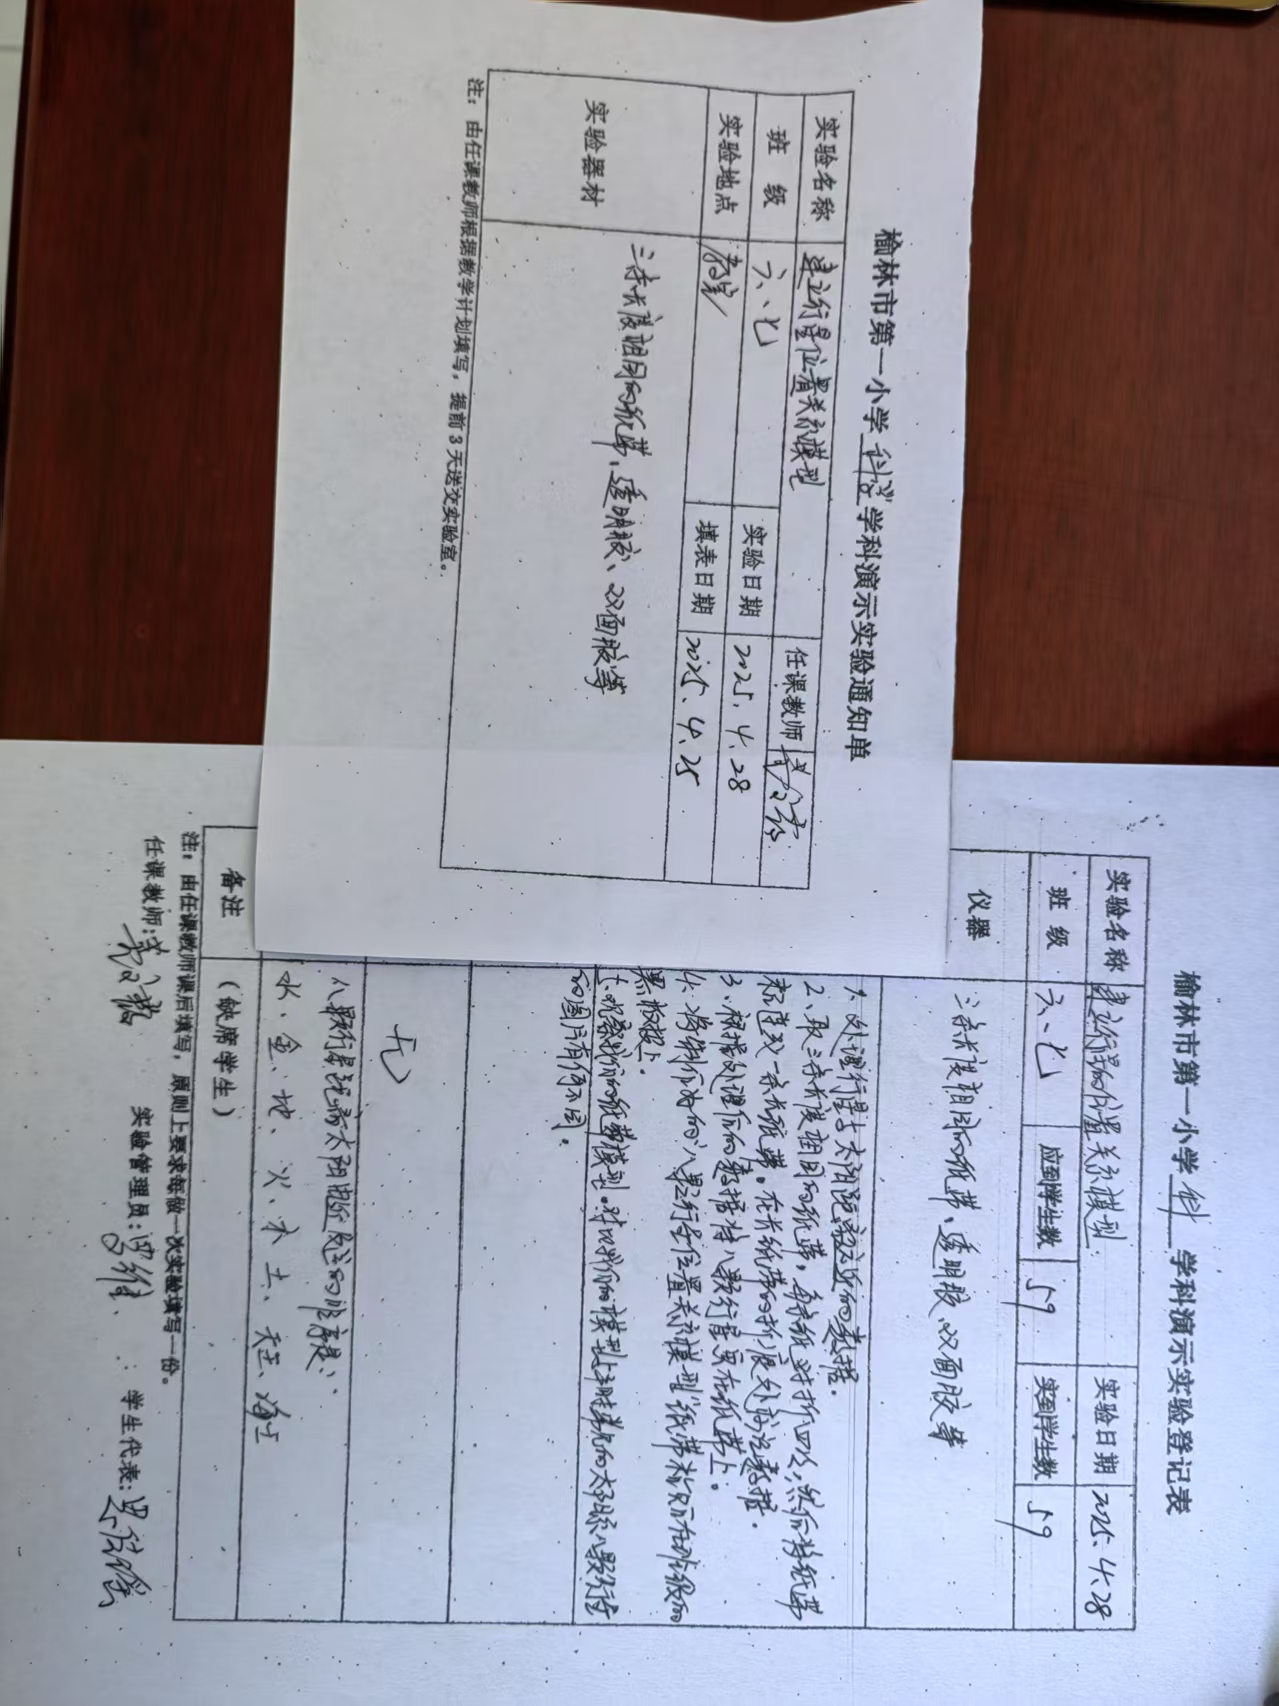 榆林市第一小学科学学科演示实验通知单
实验名称 建立行星位置关系模型 任课教师
班 级 六、七 实验日期 2025.4.28
实验地点 教室 填表日期 2025.4.25
实验器材 三条长度相同的纸带、透明胶、双面胶等
注：由任课教师根据教学计划填写，提前3天送交实验室。
榆林市第一小学 科 学科演示实验登记表
实验名称 建立行星的位置关系模型 实验日期 2025.4.28
班 级 六、七 应到学生数 59 实到学生数 59
仪器 三条长度相同的纸带、透明胶、双面胶等
1、处理行星与太阳距离远近的数据。
2、取三条长度相同的纸带，每条纸对折四次，然后将纸带
粘连成一条长纸带。在长纸带的折痕处标注数据。
3、根据处理后的数据将八颗行星贴在纸带上。
4、将制作的八颗行星位置关系模型纸带粘贴在班级的
黑板报上。
5、观察我们的纸带模型。对比我们的模型与的太阳系八颗行星
的图片有何不同。
无
八颗行星距离太阳由近及远的顺序是：
水、金、地、火、木、土、天王、海王
备注 （缺席学生）
注：由任课教师课后填写，原则上要求每做一次实验填写一份。
任课教师： 实验管理员： 学生代表：